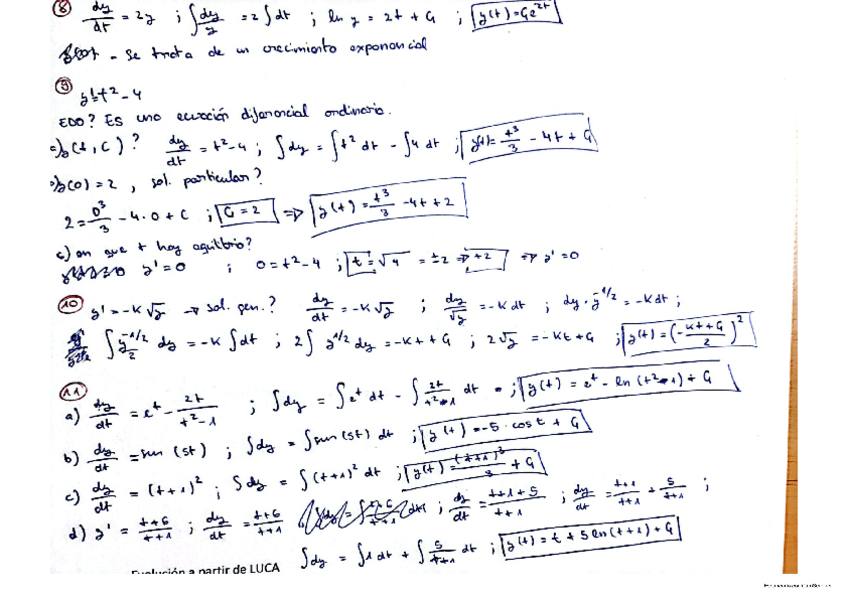 ⑧ dy/dt = 2y ; ∫dy/y = 2∫dt ; ln y = 2t + C₁ ; y(t) = C₁e^2t
- Se trata de un crecimiento exponencial
⑨ y' = t² - 4
EDO? Es una ecuación diferencial ordinaria.
a) y(t, C)? dy/dt = t² - 4 ; ∫dy = ∫t² dt - ∫4 dt ; y(t) = t³/3 - 4t + C₁
b) y(0) = 2, sol. particular?
2 = 0³/3 - 4·0 + C ; C₁ = 2 => y(t) = t³/3 - 4t + 2
c) en que t hay equilibrio?
y' = 0 ; 0 = t² - 4 ; t = √4 = ±2 => +2 => y' = 0
⑩ y' = -K√y → sol. gen.? dy/dt = -K√y ; dy/√y = -K dt ; dy · y^-1/2 = -K dt ;
∫ y^-1/2/2 dy = -K ∫dt ; 2∫ y^1/2 dy = -Kt + C₁ ; 2√y = -Kt + C₁ ; y(t) = (-Kt + C₁/2)²
⑪
a) dy/dt = e^t - 2t/t²-1 ; ∫dy = ∫e^t dt - ∫2t/t²-1 dt = ; y(t) = e^t - ln(t²-1) + C₁
b) dy/dt = sen(5t) ; ∫dy = ∫sen(5t) dt ; y(t) = -5 · cos t + C₁
c) dy/dt = (t+1)² ; ∫dy = ∫(t+1)² dt ; y(t) = (t+1)³/3 + C₁
d) y' = t+6/t+1 ; dy/dt = t+6/t+1 ; dy/dt = t+1+5/t+1 ; dy/dt = t+1/t+1 + 5/t+1 ;
∫dy = ∫1 dt + ∫5/t+1 dt ; y(t) = t + 5 ln(t+1) + C₁
Evolución a partir de LUCA